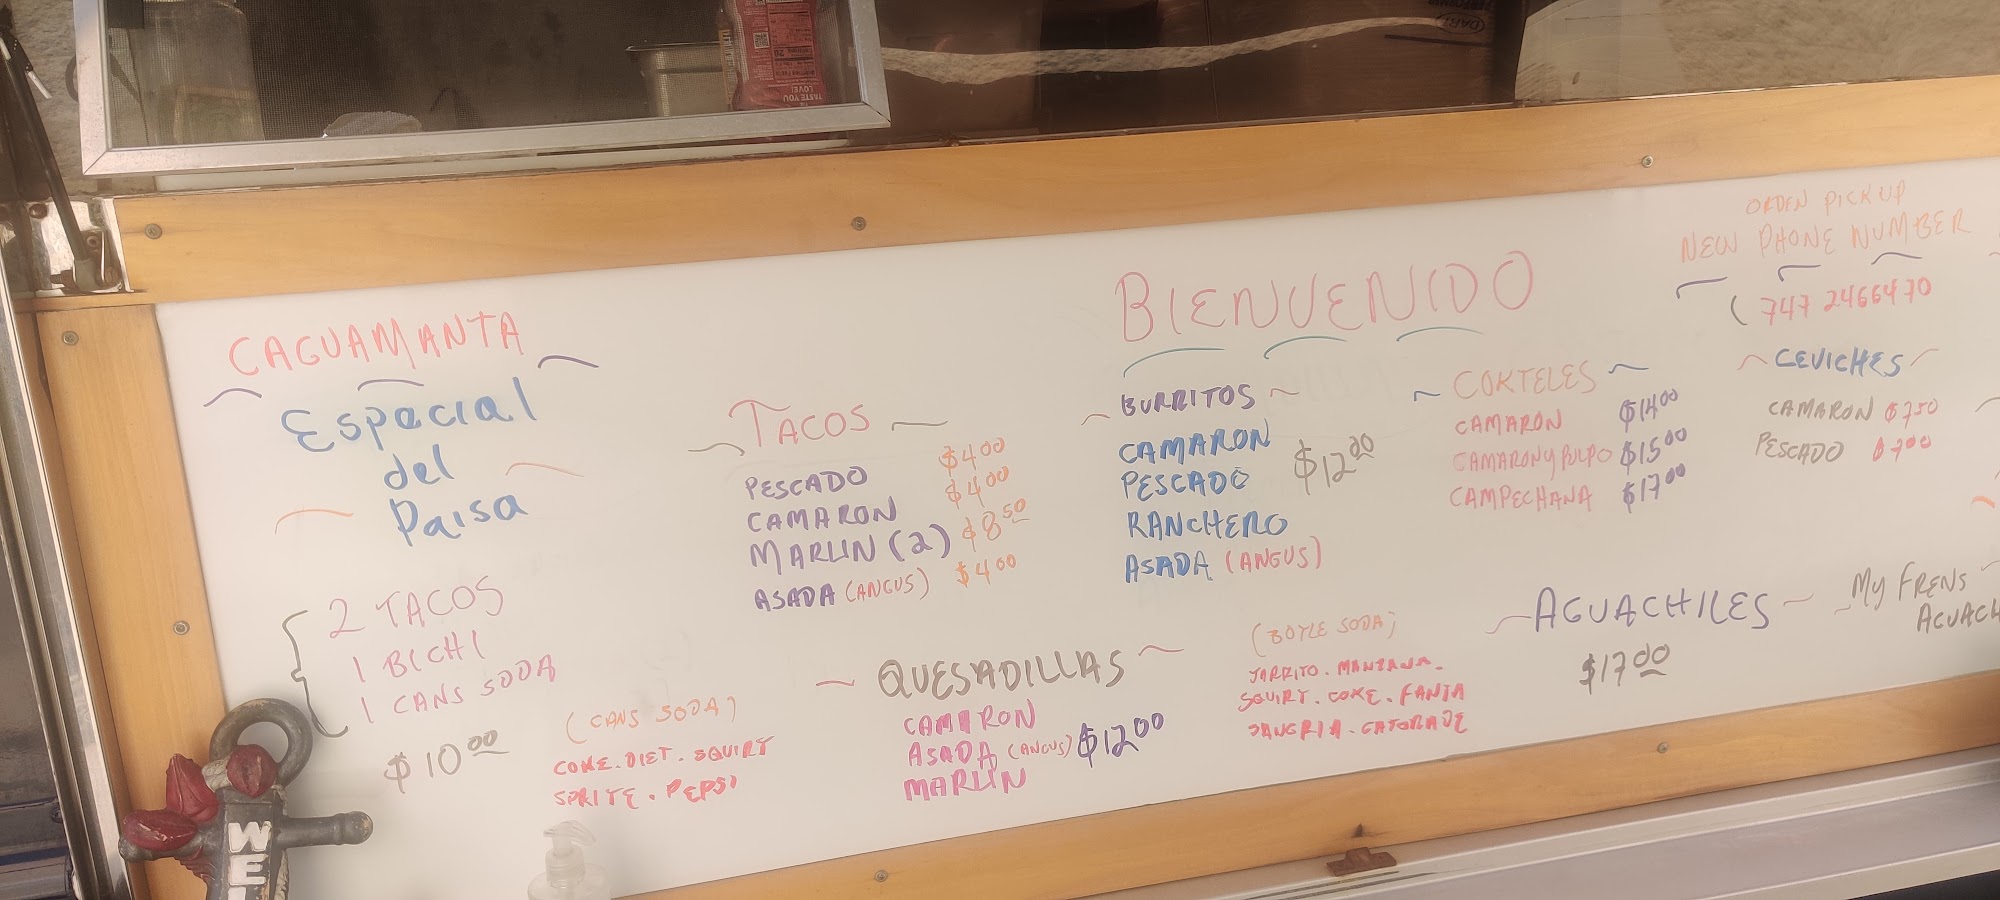 CAGUAMANTA
Especial
del
Paisa
2 TACOS
1 BICHI
1 CANS SODA
$10.00
(CANS SODA)
COKE.DIET.SQUIRT
SPRITE.PEPSI
TACOS
PESCADO $4.00
CAMARON $4.00
MARLIN (2) $8.50
ASADA (ANGUS) $4.00
QUESADILLAS
CAMARON
ASADA (ANGUS) $12.00
MARLIN
BIENVENIDO
BURRITOS
CAMARON
PESCADO $12.00
RANCHERO
ASADA (ANGUS)
(BOTLE SODA)
JARRITO.MANZANA.
SQUIRT.COKE.FANTA
SANGRIA.GATORADE
COKTELES
CAMARON $14.00
CAMARON Y PULPO $15.00
CAMPECHANA $17.00
AGUACHILES
$17.00
ORDEN PICK UP
NEW PHONE NUMBER
( 747 2466470
CEVICHES
CAMARON $7.50
PESCADO $7.00
MY FRENS
AGUACH
WEL
TASTE YOU
LOVE!
DART